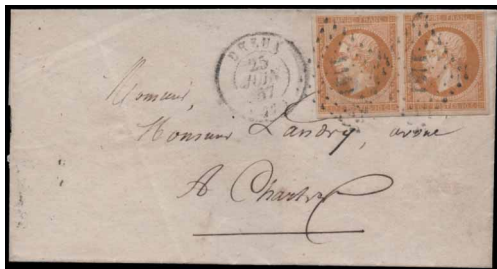 DREUX
25
JUIN
57
Monsieur,
Monsieur Landry, avoué
A Chartres